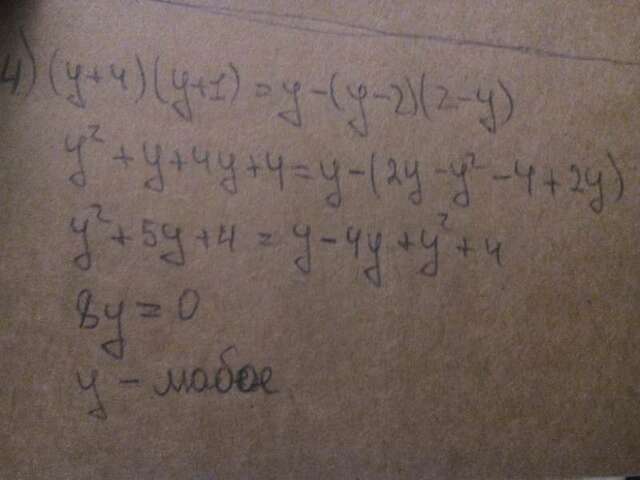 4) (y+4)(y+1) = y-(y-2)(2-y)
y² + y + 4y + 4 = y - (2y - y² - 4 + 2y)
y² + 5y + 4 = y - 4y + y² + 4
8y = 0
y - любое